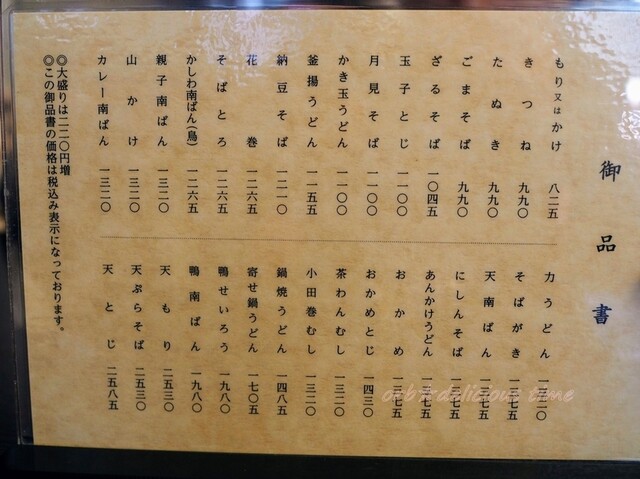 御品書
もり又はかけ 八二五
きつね 九九〇
たぬき 九九〇
ごまそば 九九〇
ざるそば 一〇四五
玉子とじ 一一〇〇
月見そば 一一〇〇
かき玉うどん 一一〇〇
釜揚うどん 一一五五
納豆そば 一二一〇
花巻 一二六五
そばとろ 一二六五
かしわ南ばん(鳥) 一二六五
親子南ばん 一三二〇
山かけ 一三二〇
カレー南ばん 一三二〇
力うどん
そばがき
天南ばん
にしんそば
あんかけうどん
おかめ 一三七五
おかめとじ 一四三〇
茶わんむし 一三二〇
小田巻むし 一三二〇
鍋焼うどん 一四八五
寄せ鍋うどん 一七〇五
鴨せいろう 一九八〇
鴨南ばん 一九八〇
天もり 二五三〇
天ぷらそば 二五三〇
天とじ 二五八五
◎大盛りは二二〇円増
◎この御品書の価格は税込み表示になっております。
delicious time